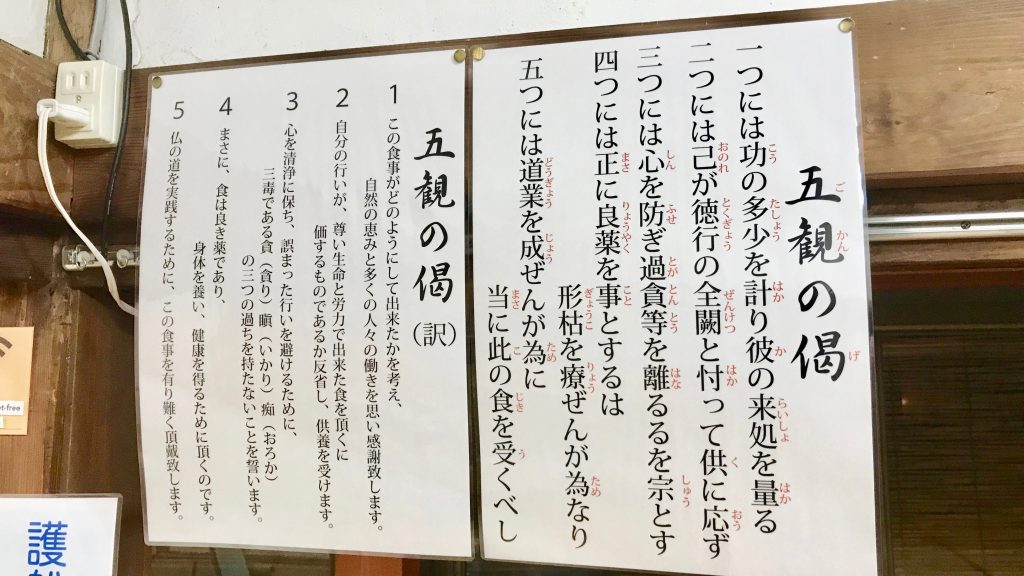 五観の偈
一つには功の多少を計り彼の来処を量る
二つには己が徳行の全闕と忖って供に応ず
三つには心を防ぎ過貪等を離るるを宗とす
四つには正に良薬を事とするは
形枯を療ぜんが為なり
五つには道業を成ぜんが為に
当に此の食を受くべし
五観の偈（訳）
1 この食事がどのようにして出来たかを考え、
自然の恵みと多くの人々の働きを思い感謝致します。
2 自分の行いが、尊い生命と労力で出来た食を頂くに
価するものであるか反省し、供養を受けます。
3 心を清浄に保ち、誤まった行いを避けるために、
三毒である貪（貪り）瞋（いかり）痴（おろか）
の三つの過ちを持たないことを誓います。
4 まさに、食は良き薬であり、
身体を養い、健康を得るために頂くのです。
5 仏の道を実践するために、この食事を有り難く頂戴致します。
護
t-free